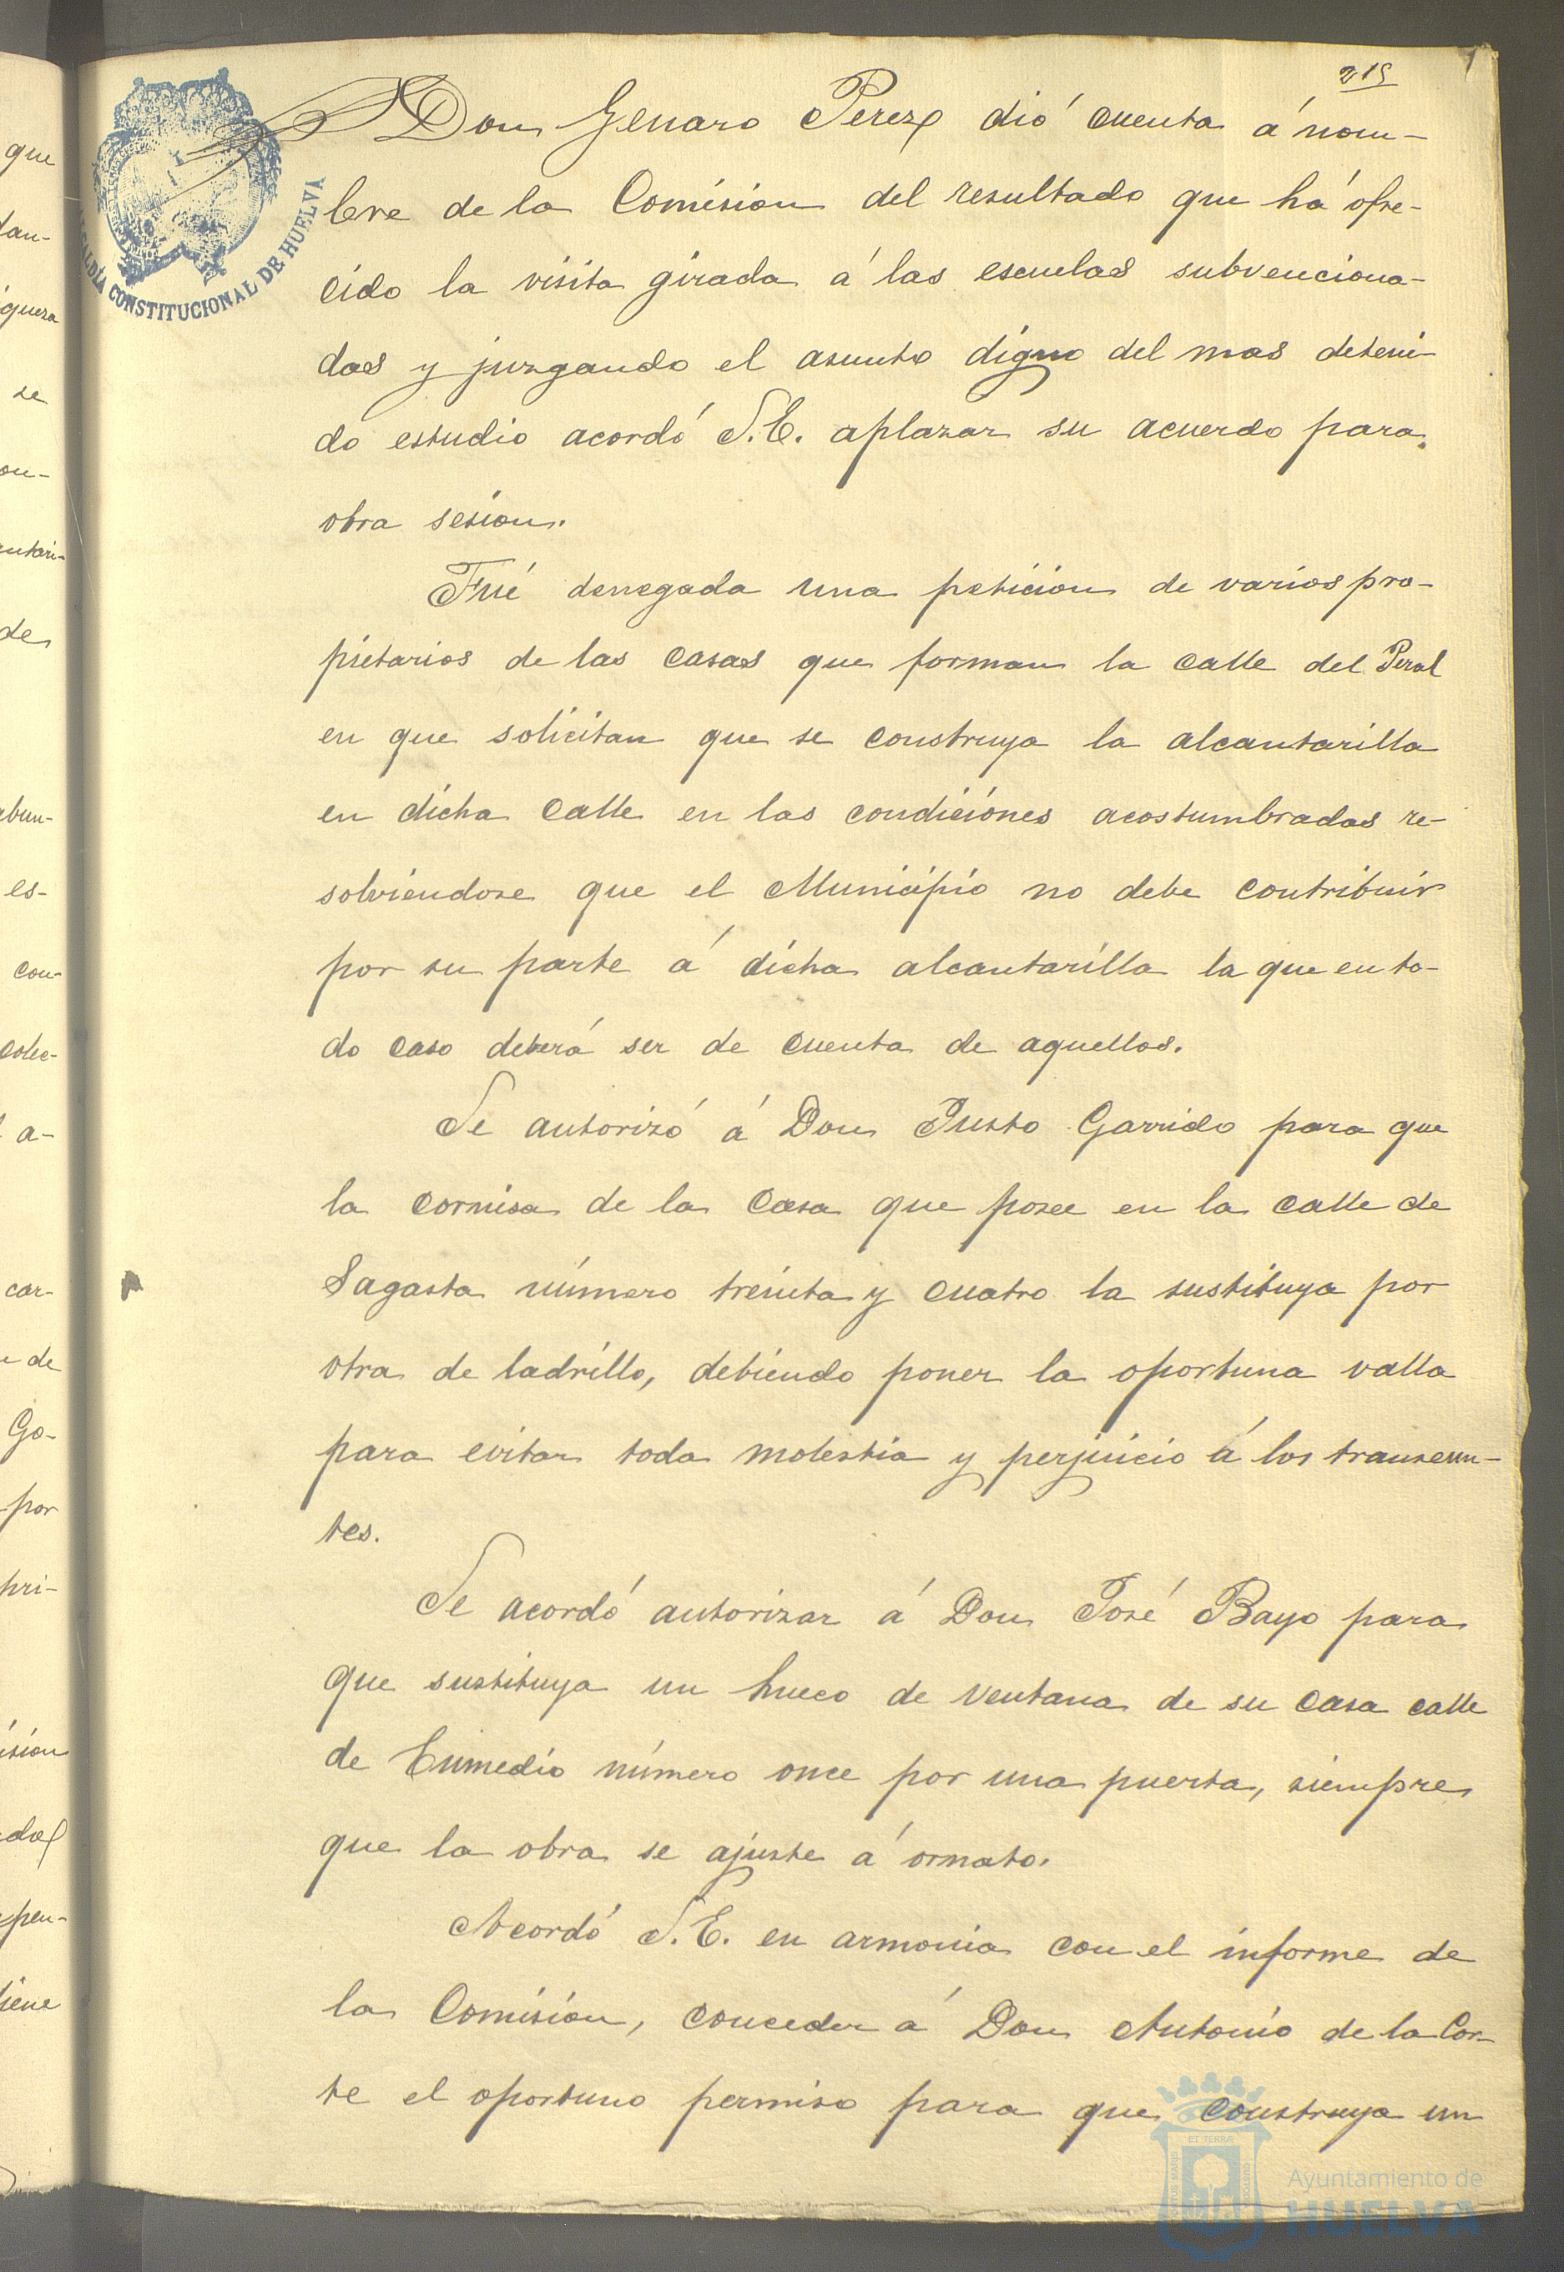 215
Don Genaro Perez dió cuenta á nom-
bre de la Comision del resultado que há ofre-
cido la visita girada á las escuelas subvenciona-
das y juzgando el asunto digno del mas deteni-
do estudio acordó S.E. aplazar su acuerdo para
otra sesion.
Fué denegada una peticion de varios pro-
pietarios de las casas que forman la calle del Peral
en que solicitan que se construya la alcantarilla
en dicha calle en las condiciones acostumbradas re-
solviendose que el Municipio no debe contribuir
por su parte á dicha alcantarilla la que en to-
do caso deberá ser de cuenta de aquellos.
Se autorizó á Don Justo Garrido para que
la cornisa de la casa que posee en la calle de
Sagasta número treinta y cuatro la sustituya por
otra de ladrillo, debiendo poner la oportuna valla
para evitar toda molestia y perjuicio á los transeun-
tes.
Se acordó autorizar á Don José Bayo para
que sustituya un hueco de ventana de su casa calle
de Enmedio número once por una puerta, siempre
que la obra se ajuste á ornato.
Acordó S.E. en armonia con el informe de
la Comision, conceder á Don Antonio de la Cor-
te el oportuno permiso para que construya un
ALCALDÍA CONSTITUCIONAL DE HUELVA
que
dan-
se
de
es-
con-
a-
car-
de
Go-
por
Ayuntamiento de
HUELVA